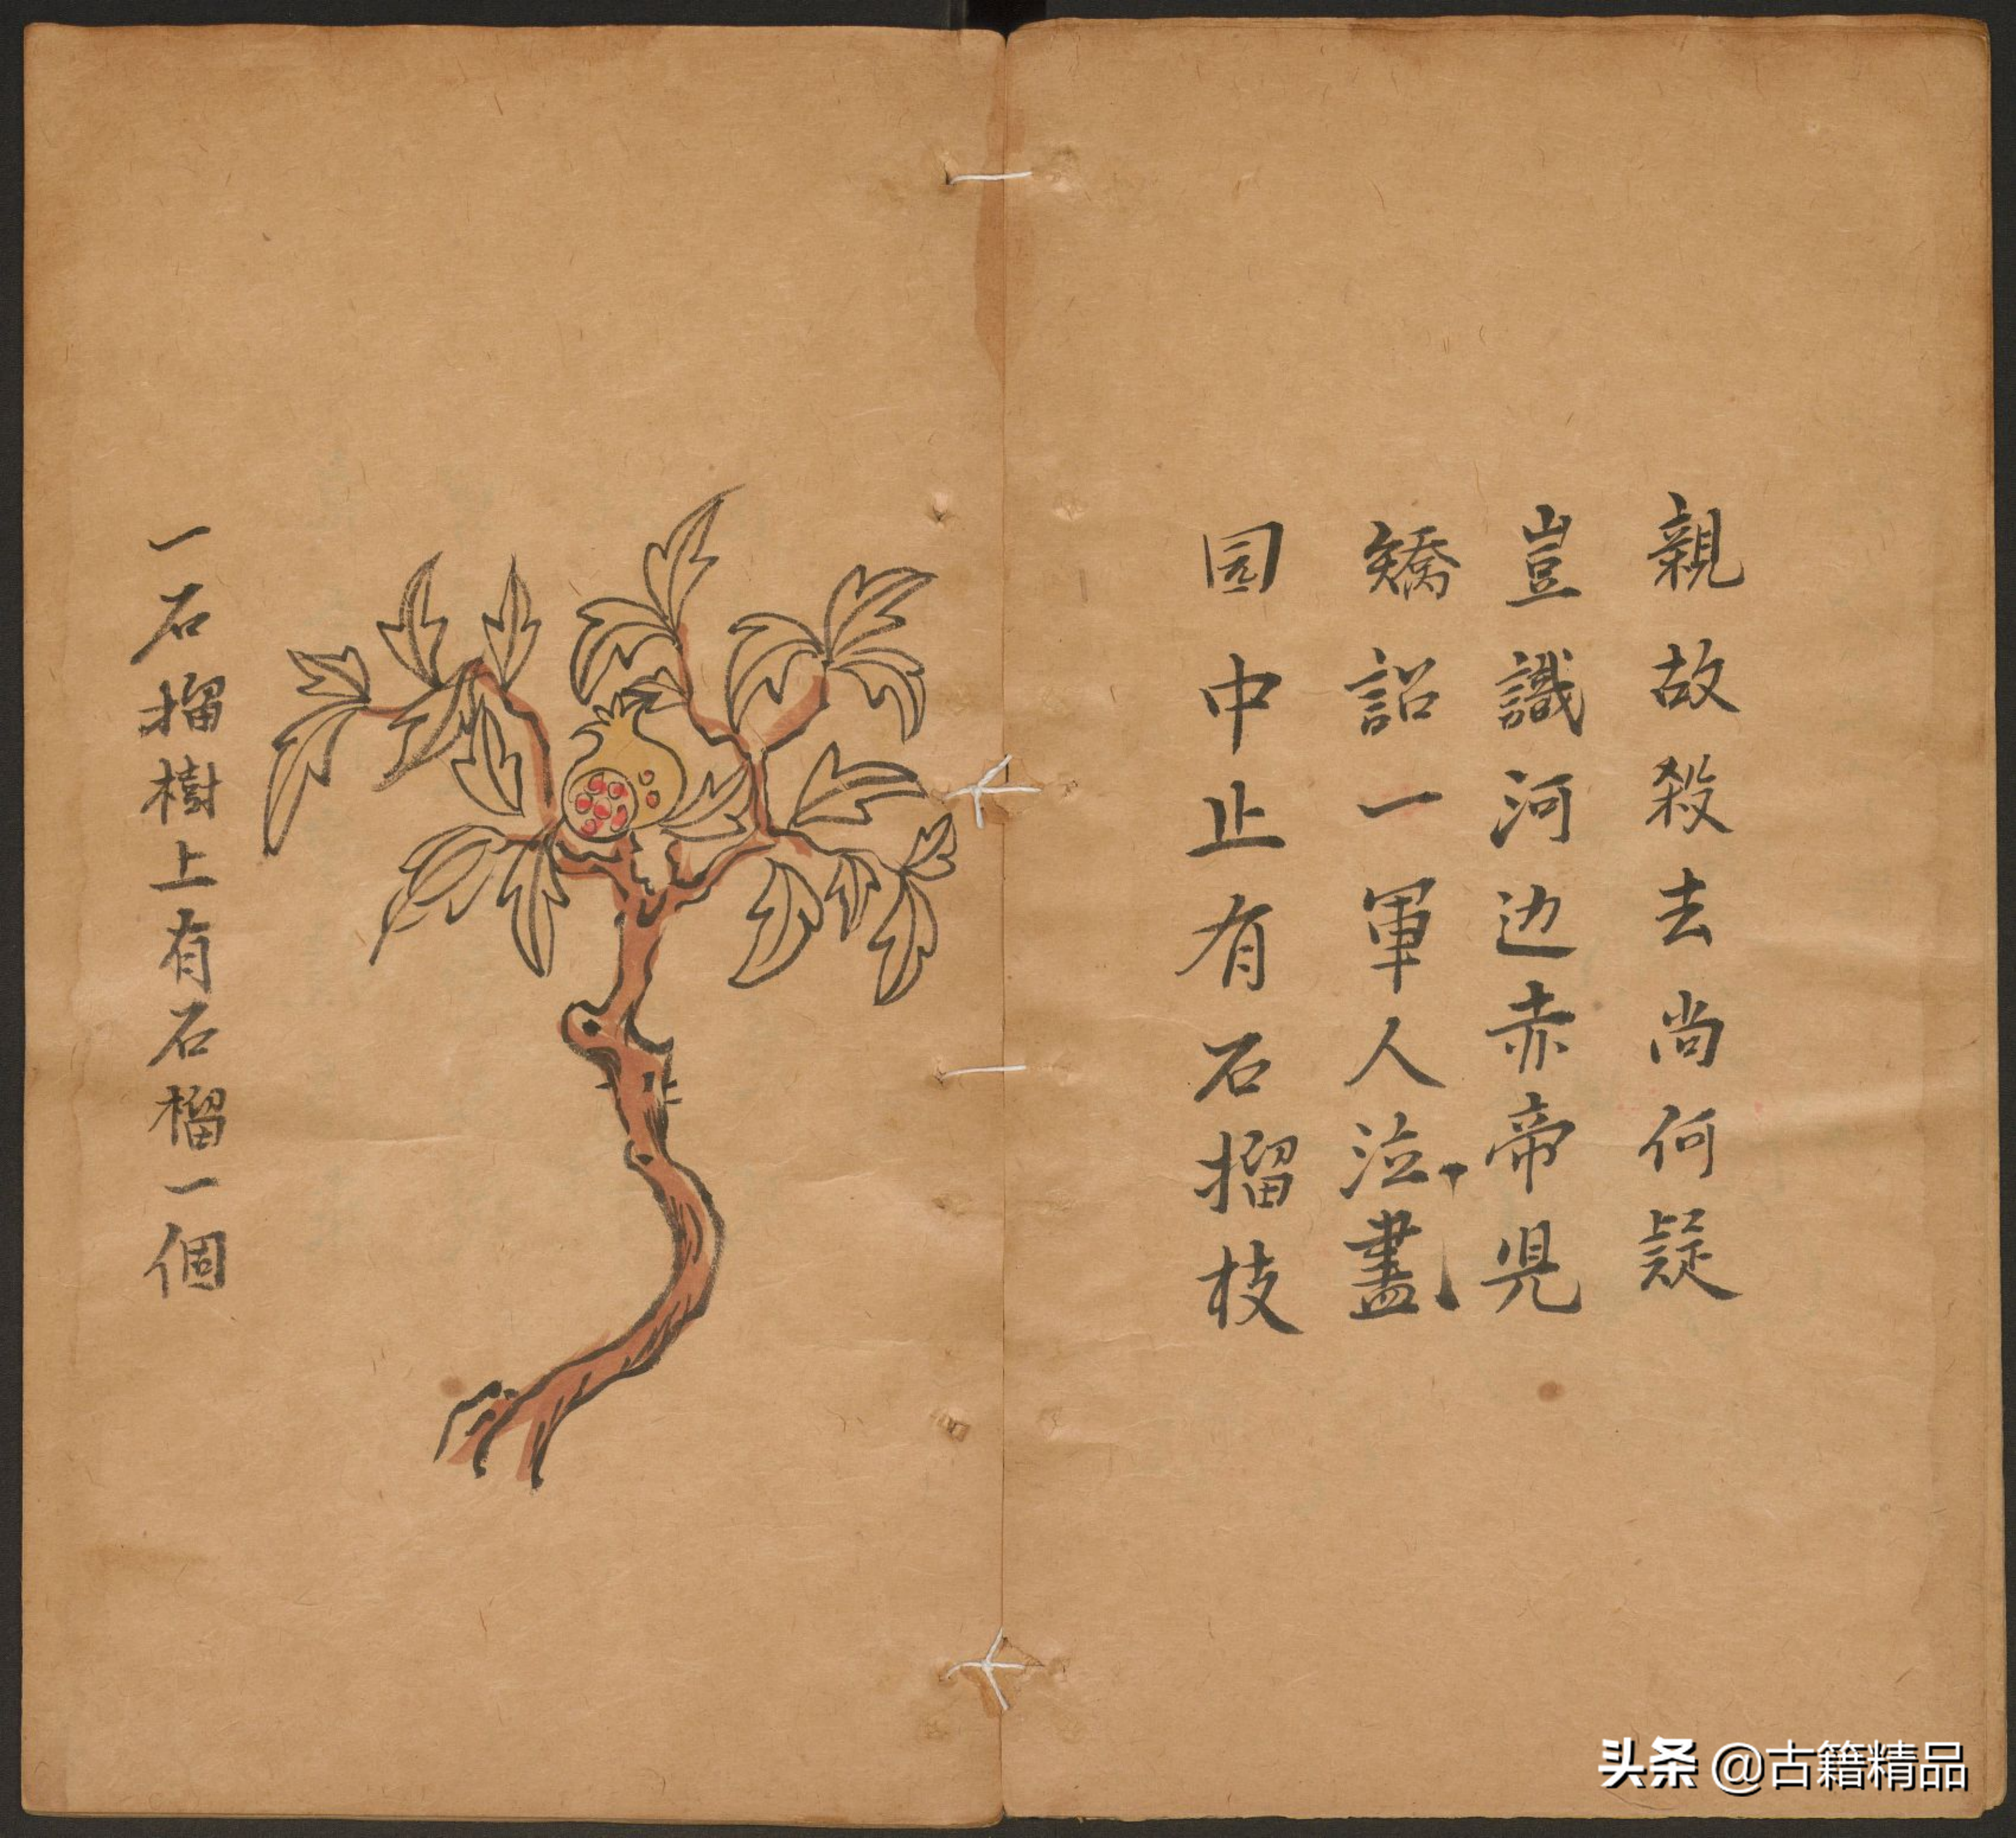 親故殺去尚何疑
豈識河边赤帝児
矯詔一軍人泣盡
园中止有石榴枝
一石榴樹上有石榴一個
头条 @古籍精品